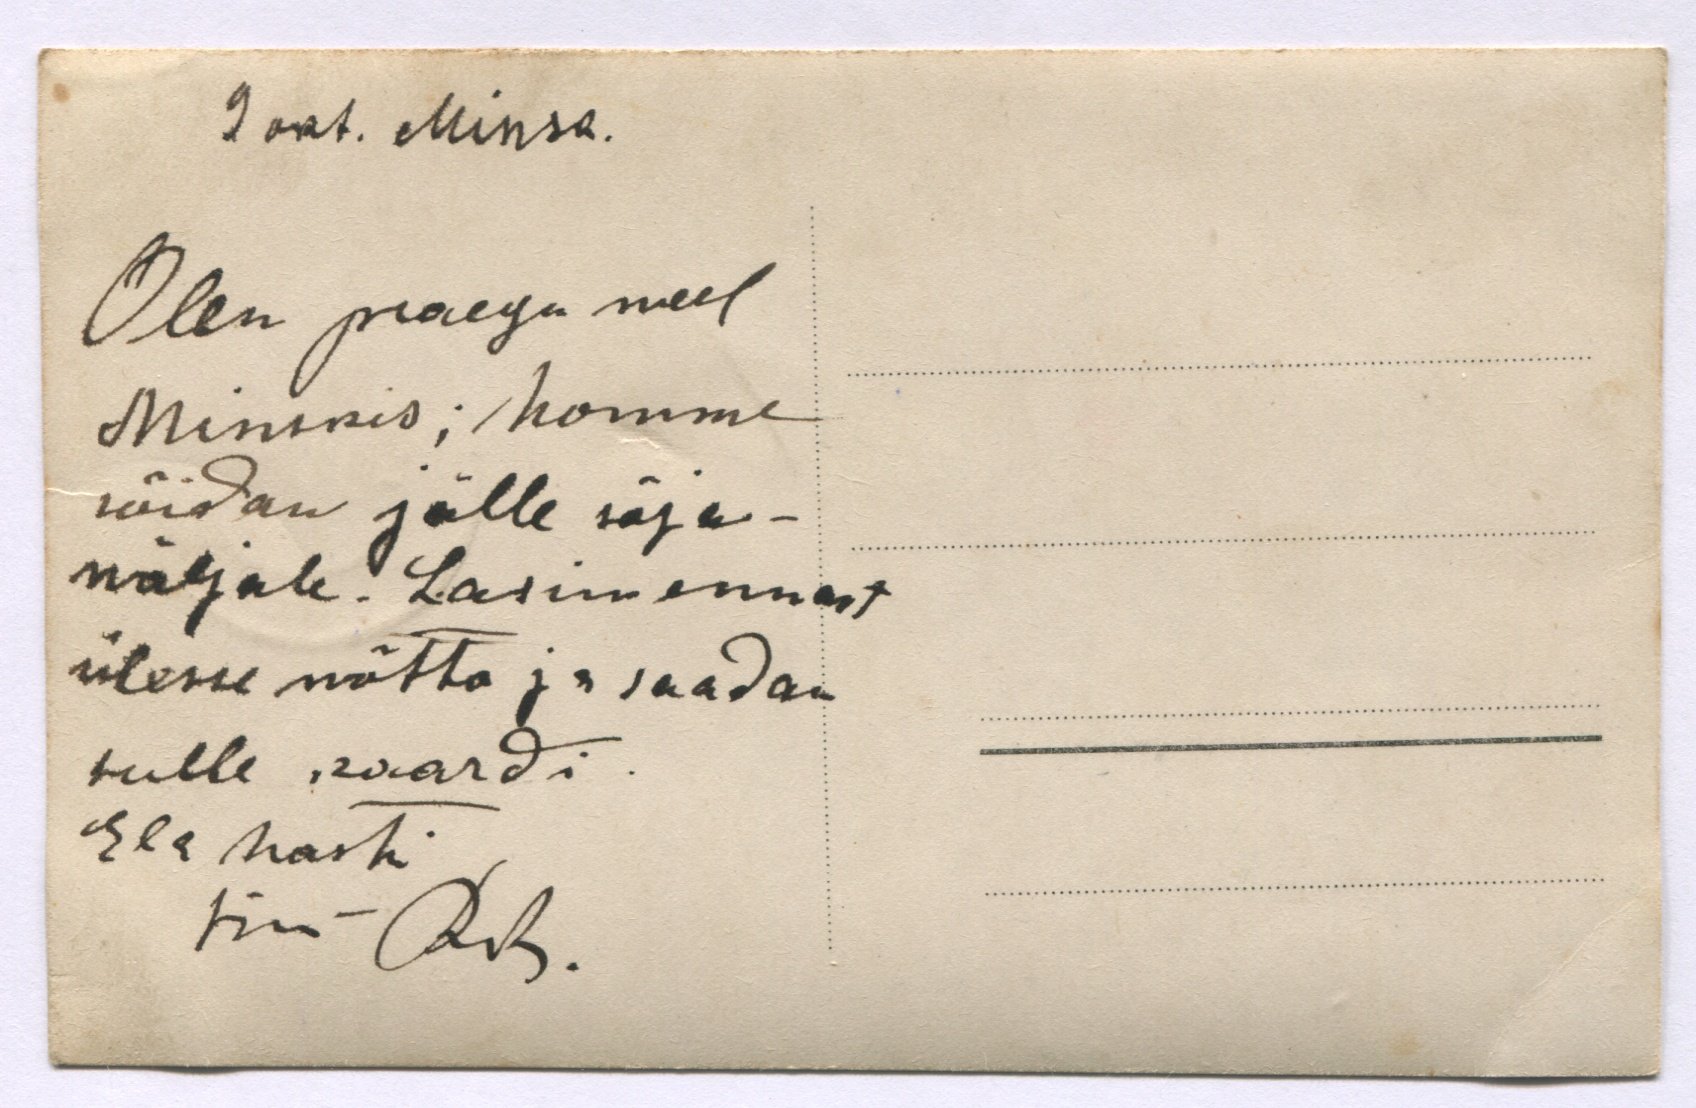 9 okt. Minsk.
Olen praegu weel
Minskis; homme
sõidan jälle sõja-
wäljale. Lasin ennast
ülesse wõtta ja saadan
sulle kaardi.
Ela hästi
Sinu